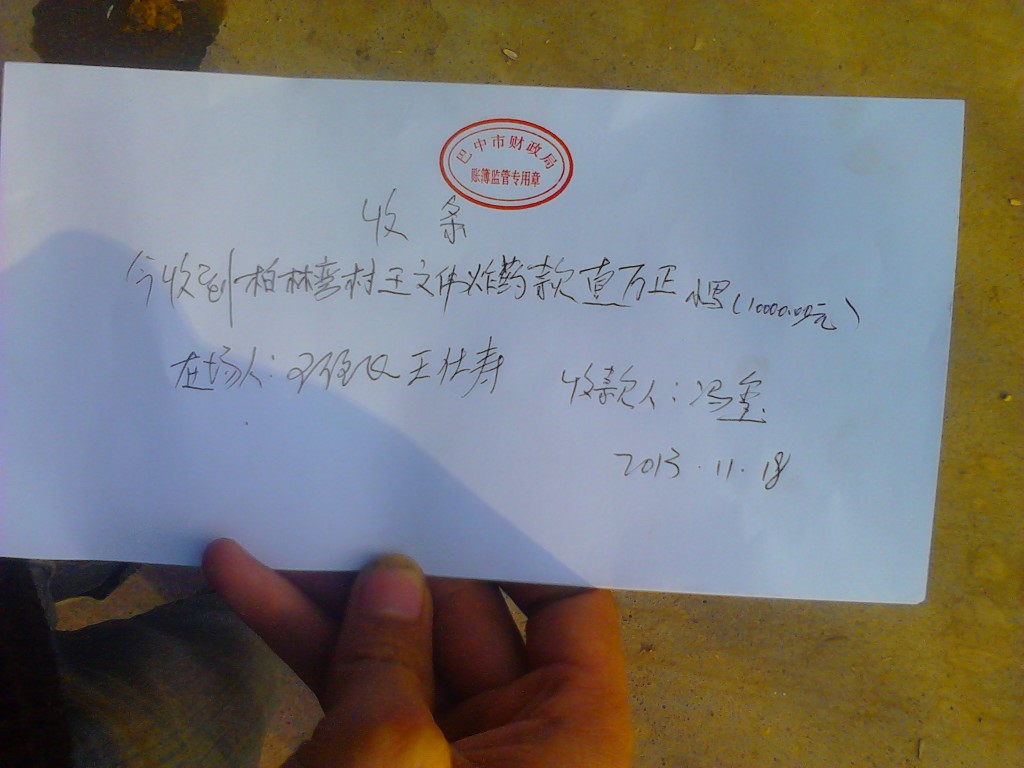 巴中市财政局
账簿监管专用章
收条
今收到柏林湾村王文伟炸药款壹万正 (10000.00元)
在场人: 王仕寿 收款人:冯玺
2013.11.18